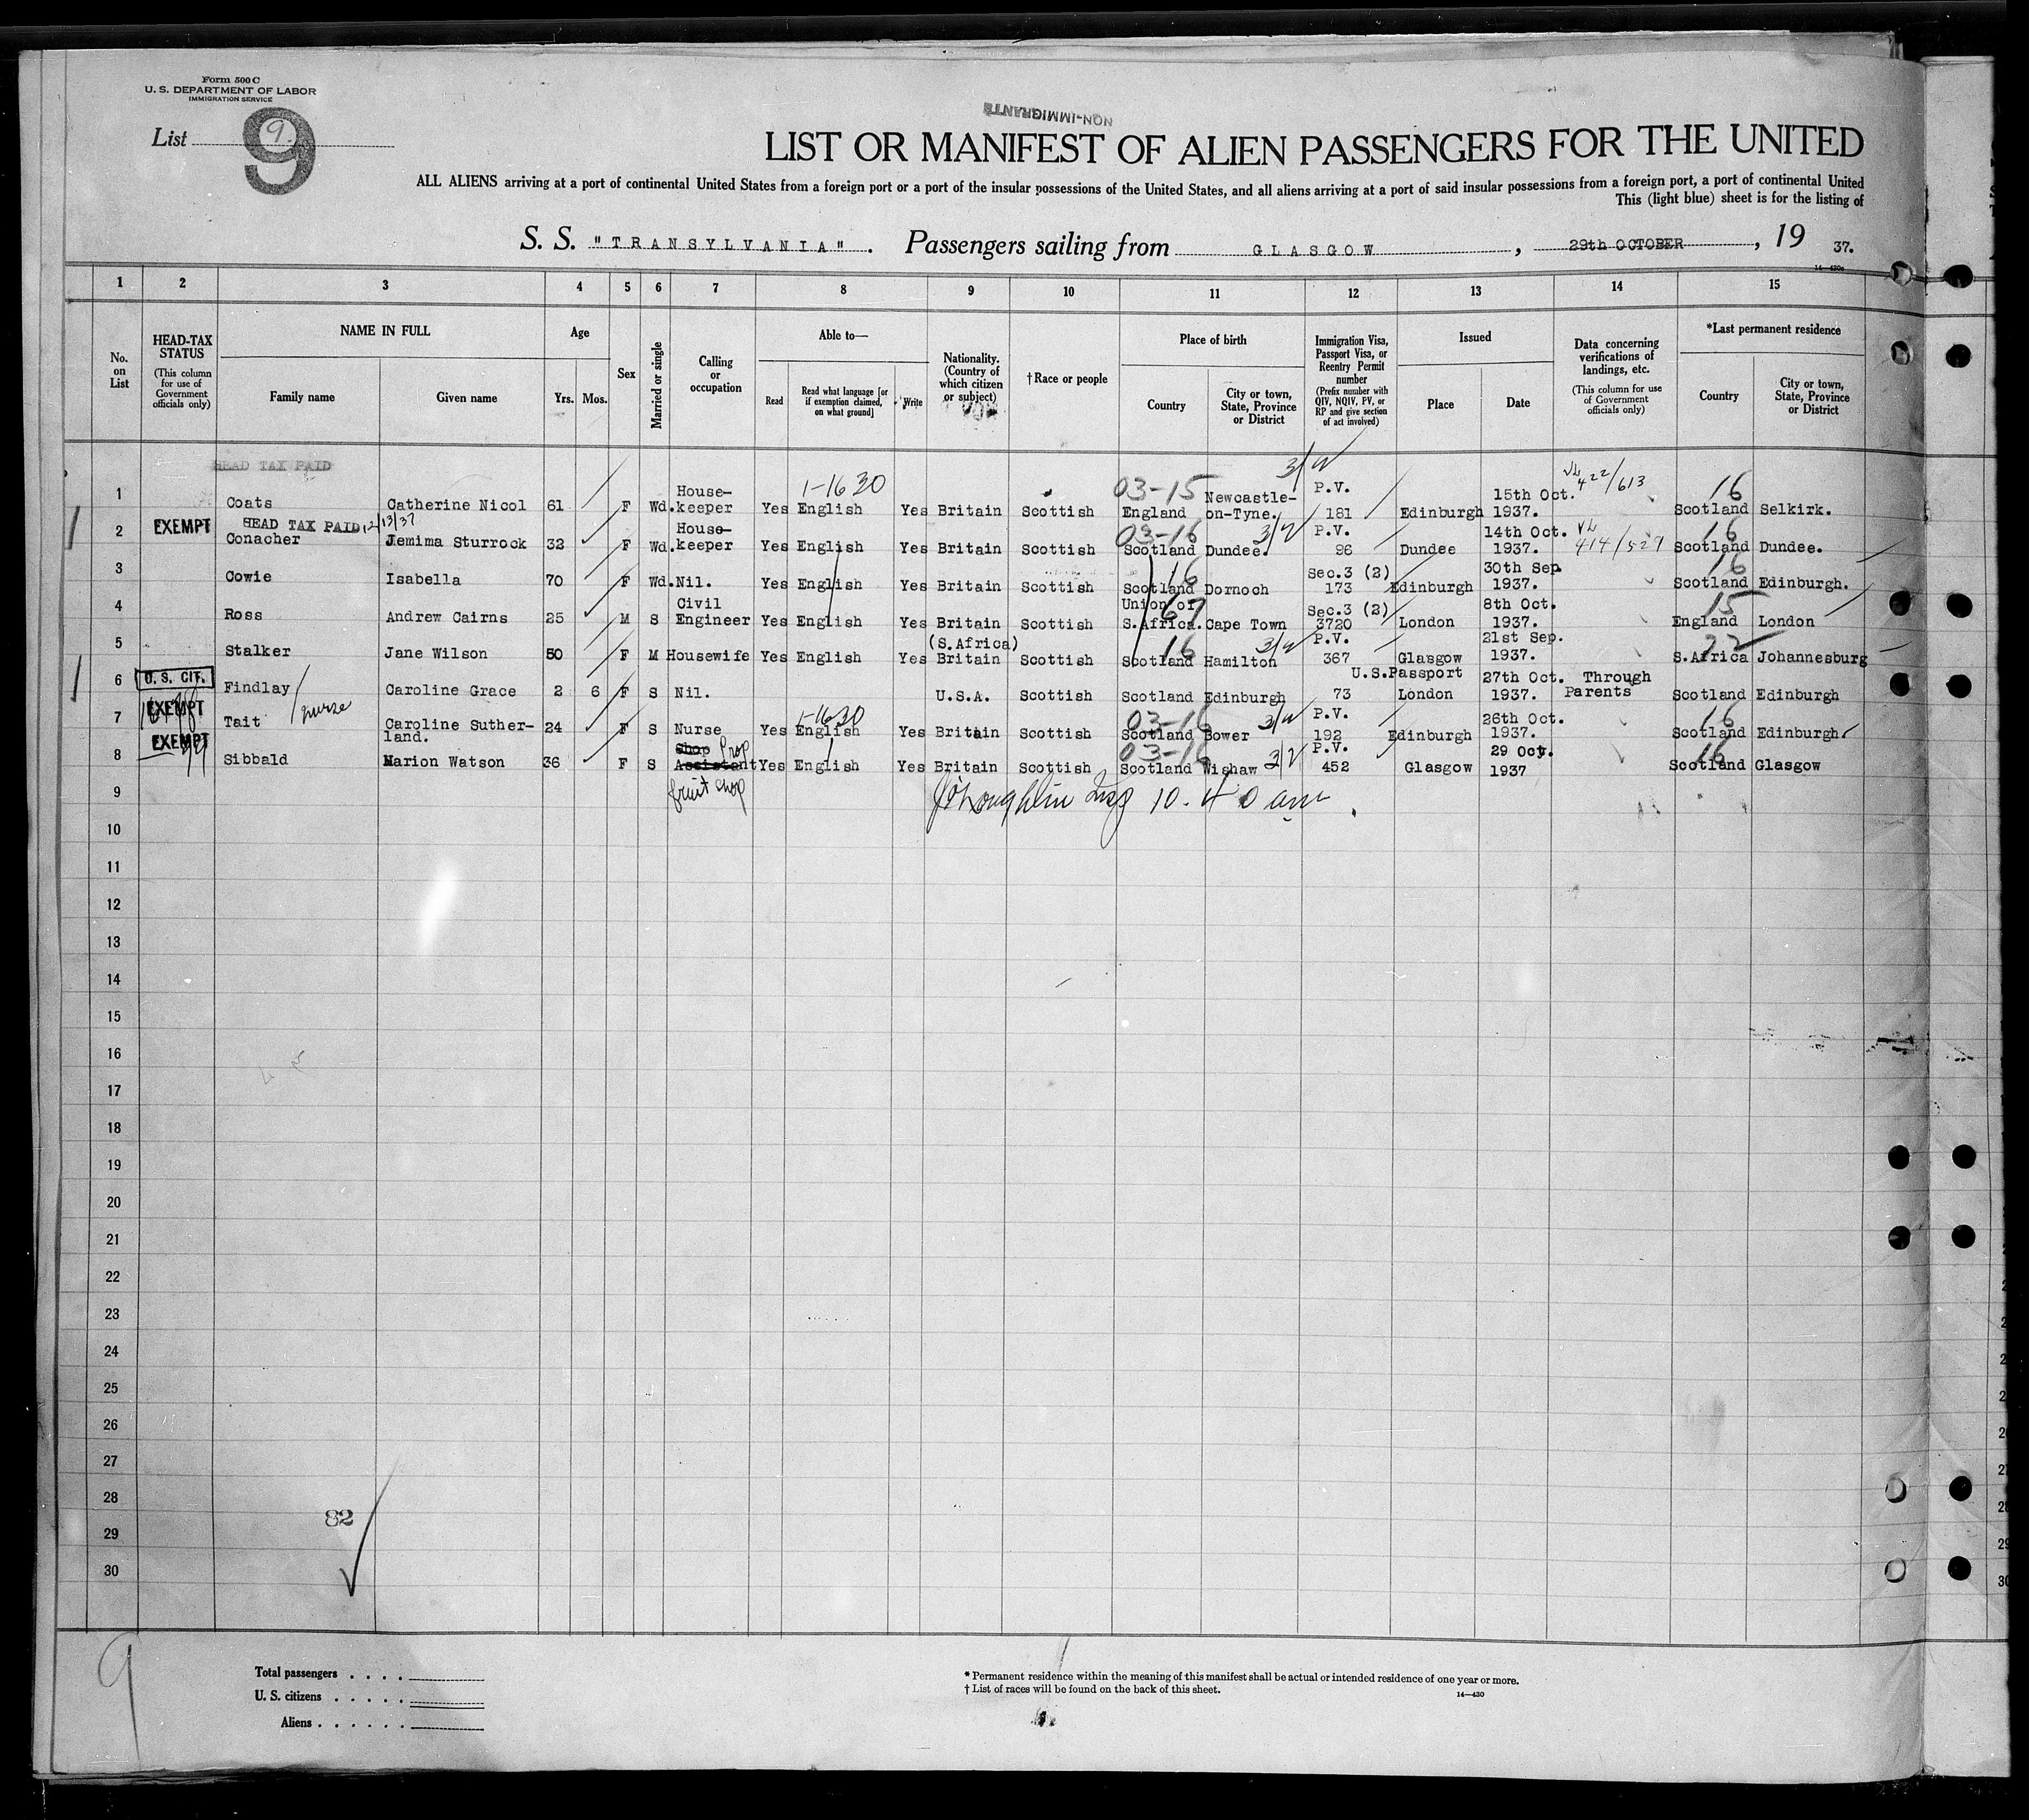 Form 500 C
U. S. DEPARTMENT OF LABOR
IMMIGRATION SERVICE
List 9.
9
NON-IMMIGRANTS
LIST OR MANIFEST OF ALIEN PASSENGERS FOR THE UNITED
ALL ALIENS arriving at a port of continental United States from a foreign port or a port of the insular possessions of the United States, and all aliens arriving at a port of said insular possessions from a foreign port, a port of continental United
This (light blue) sheet is for the listing of
S. S. "TRANSYLVANIA". Passengers sailing from GLASGOW, 29th OCTOBER, 19 37.
14—430a
1 2 3 4 5 6 7 8 9 10 11 12 13 14 15
No. on List
HEAD-TAX STATUS (This column for use of Government officials only)
NAME IN FULL
Family name
Given name
Age
Yrs. Mos.
Sex
Married or single
Calling or occupation
Able to—
Read
Read what language [or if exemption claimed, on what ground]
Write
Nationality. (Country of which citizen or subject)
†Race or people
Place of birth
Country
City or town, State, Province or District
Immigration Visa, Passport Visa, or Reentry Permit number (Prefix number with QIV, NQIV, PV, or RP and give section of act involved)
Issued
Place
Date
Data concerning verifications of landings, etc. (This column for use of Government officials only)
*Last permanent residence
Country
City or town, State, Province or District
HEAD TAX PAID
1 Coats Catherine Nicol 61 F Wd. House-keeper Yes English 1-16 30 Yes Britain Scottish 03-15 England Newcastle-on-Tyne. 3/2 P.V. 181 Edinburgh 15th Oct. 1937. 422/613 16 Scotland Selkirk.
2 EXEMPT HEAD TAX PAID 12/13/37 Conacher Jemima Sturrock 32 F Wd. House-keeper Yes English Yes Britain Scottish 03-16 Scotland Dundee. 3/2 P.V. 96 Dundee 14th Oct. 1937. 414/529 16 Scotland Dundee.
3 Cowie Isabella 70 F Wd. Nil. Yes English Yes Britain Scottish 16 Scotland Dornoch Sec.3 (2) 173 Edinburgh 30th Sep. 1937. 16 Scotland Edinburgh.
4 Ross Andrew Cairns 25 M S Civil Engineer Yes English Yes Britain (S.Africa) Scottish 67 Union of S.Africa. Cape Town Sec.3 (2) 3720 London 8th Oct. 1937. 15 England London
5 Stalker Jane Wilson 50 F M Housewife Yes English Yes Britain Scottish 16 Scotland Hamilton 3/2 P.V. 367 Glasgow 21st Sep. 1937. 22 S.Africa Johannesburg
6 U. S. CIT. Findlay Caroline Grace 2 6 F S Nil. U.S.A. Scottish Scotland Edinburgh U.S.Passport 73 London 27th Oct. 1937. Through Parents Scotland Edinburgh
7 EXEMPT Tait nurse Caroline Suther-land. 24 F S Nurse Yes English 1-16 30 Yes Britain Scottish 03-16 Scotland Bower 3/2 P.V. 192 Edinburgh 26th Oct. 1937. 16 Scotland Edinburgh
8 EXEMPT Sibbald Marion Watson 36 F S Shop Assistant Prop fruit shop Yes English Yes Britain Scottish 03-16 Scotland Wishaw 3/2 P.V. 452 Glasgow 29 Oct. 1937 16 Scotland Glasgow
9 J O'Loughlin Insp 10.40 am
10
11
12
13
14
15
16
17
18
19
20
21
22
23
24
25
26
27
28
29
30
82
9
Total passengers . . . .
U. S. citizens . . . . .
Aliens . . . . . .
* Permanent residence within the meaning of this manifest shall be actual or intended residence of one year or more.
† List of races will be found on the back of this sheet.
14—430